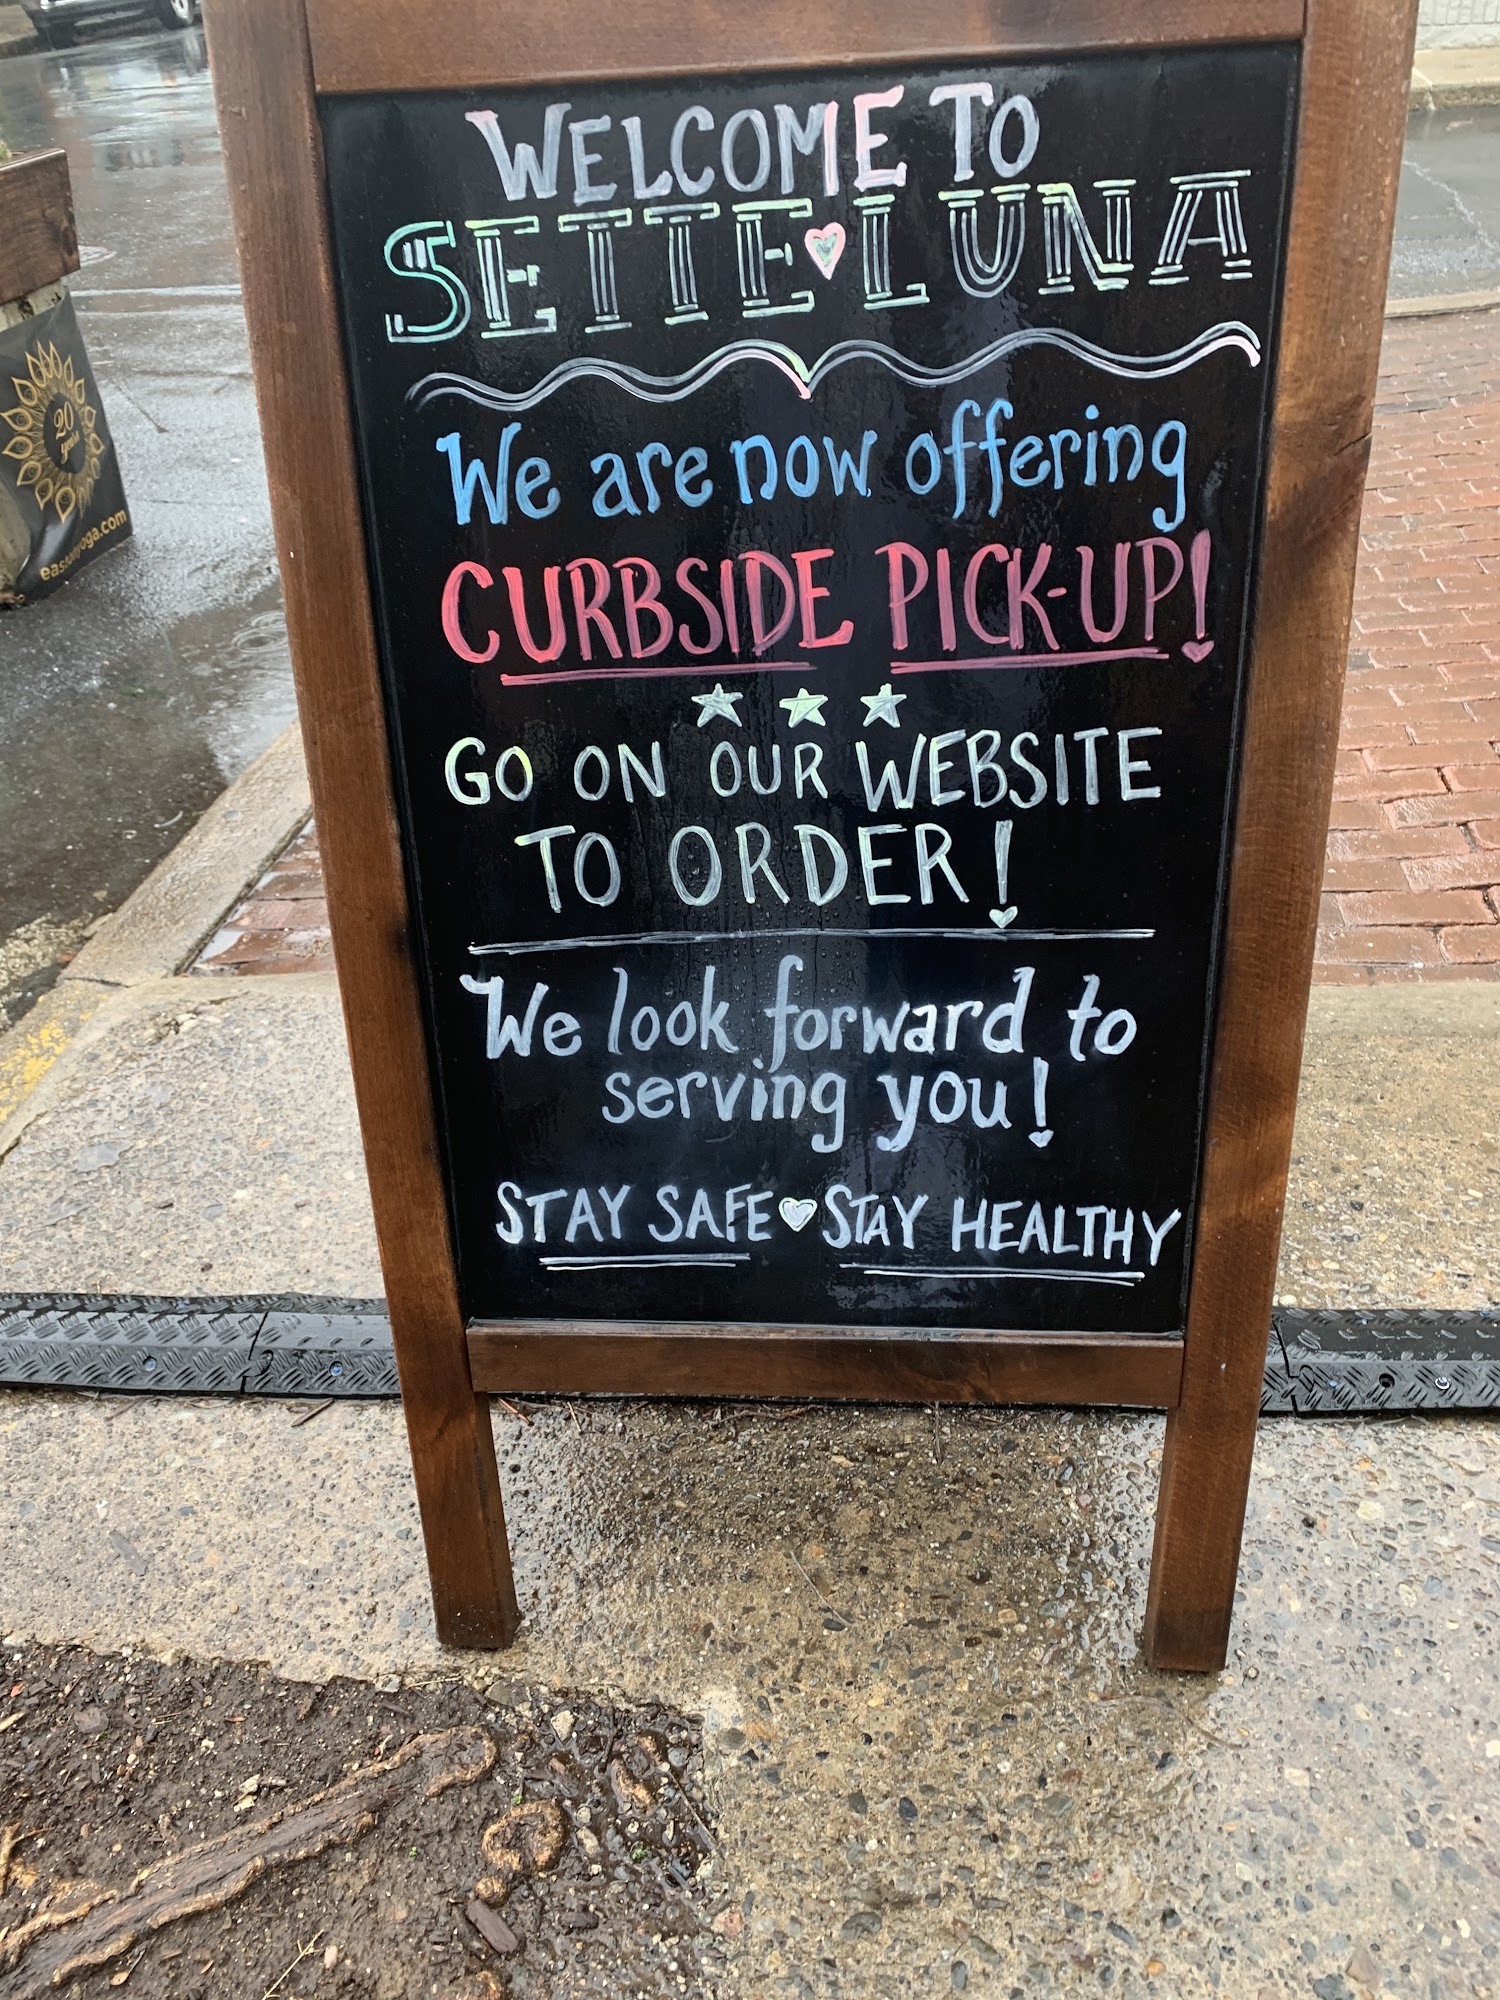 WELCOME TO
SETTE LUNA
We are now offering
CURBSIDE PICK-UP!
GO ON OUR WEBSITE
TO ORDER!
We look forward to
serving you!
STAY SAFE STAY HEALTHY
20
years
eastonyoga.com